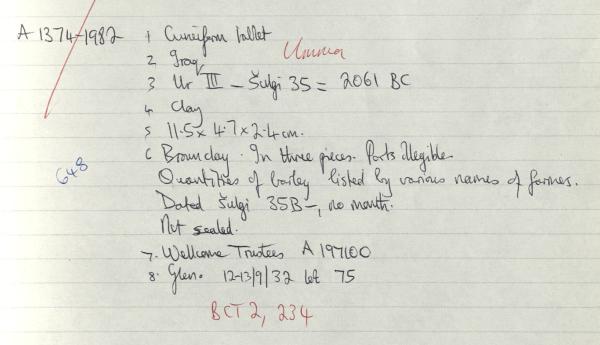 A 1374-1982 1 Cuneiform tablet
Umma
2 Iraq
3 Ur III – Šulgi 35 = 2061 BC
4 Clay
5 11.5 x 4.7 x 2.4 cm.
648
6 Brown clay. In three pieces. Parts illegible.
Quantities of barley listed by various names of farmers.
Dated Šulgi 35B –, no month.
Not sealed.
7. Wellcome Trustees A 197100
8. Glen. 12-13/9/32 lot 75
BCT 2, 234